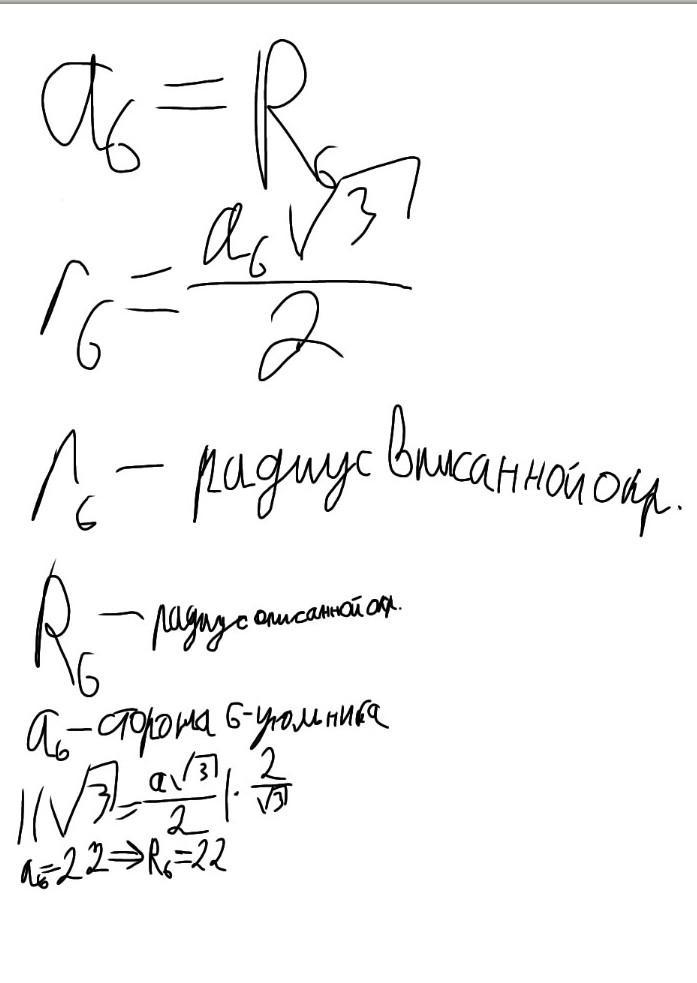 a₆ = R₆
r₆ = a₆√3 / 2
r₆ — радиус вписанной окр.
R₆ — радиус описанной окр.
a₆ — сторона 6-угольника
11√3 = a√3 / 2 | · 2 / √3
a₆ = 22 ⇒ R₆ = 22